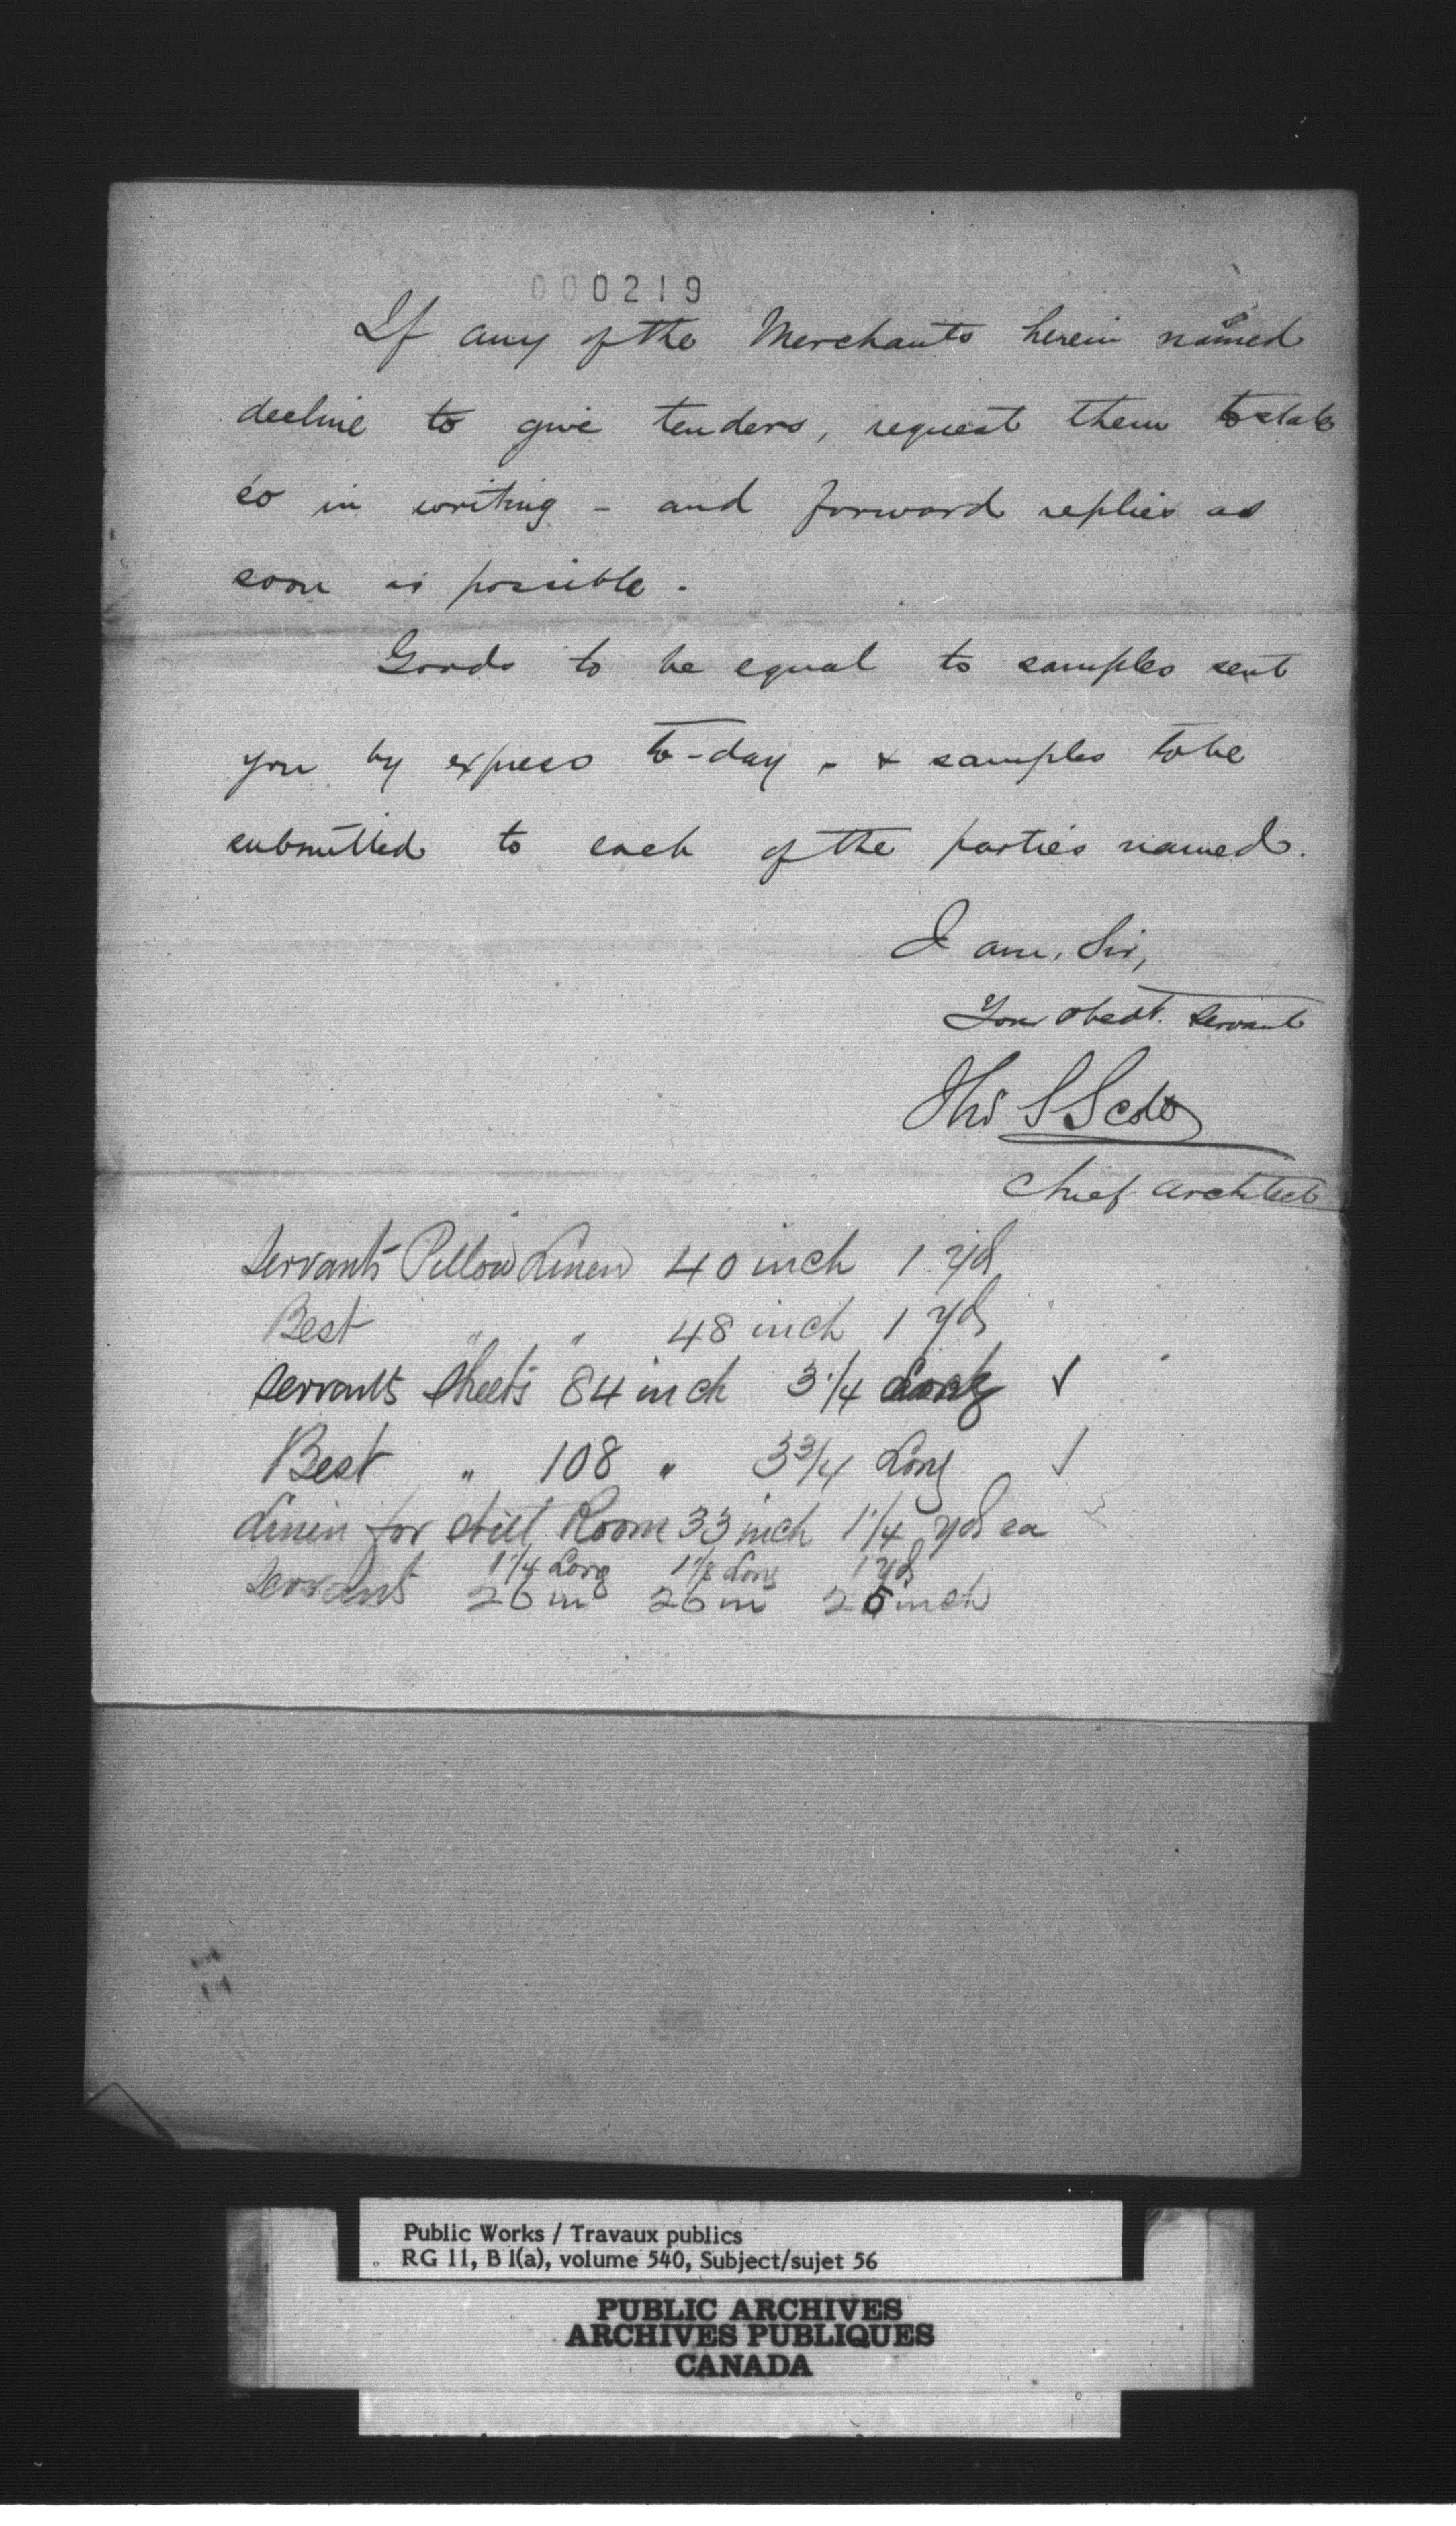 000219
If any of the Merchants herein named
decline to give tenders, request them to state
so in writing - and forward replies as
soon as possible.
Goods to be equal to samples sent
you by express to-day - & samples to be
submitted to each of the parties named.
I am, Sir,
Your obedt. servant
Thos S Scott
Chief Architect
Servants Pillow Linen 40 inch 1 yd
Best " " 48 inch 1 yd
Servants Sheets 84 inch 3 1/4 Long ✓
Best " 108 " 3 3/4 Long ✓
Linen for Still Room 33 inch 1 1/4 yds ea
1 1/4 Long 1 1/8 Long 1 yd
Servants 26 in 26 in 26 inch
Public Works / Travaux publics
RG 11, B 1(a), volume 540, Subject/sujet 56
PUBLIC ARCHIVES
ARCHIVES PUBLIQUES
CANADA